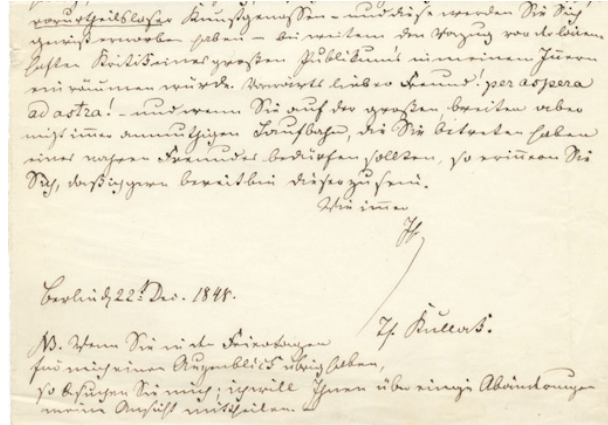 vorurtheilsloser Kunstgenossen – und diese werden Sie Sich
gewiß erworben haben – bei weitem den Vorzug vor der
haften Kritik eines großen Publikum's in meinem Innern
einräumen würde. Vorwärts lieber Freund! per aspera
ad astra! – und wenn Sie auf der großen, breiten aber
nicht immer anmuthigen Laufbahn, die Sie betreten haben
eines wahren Freundes bedürfen sollten, so erinnern Sie
Sich, daß ich gern bereit bin dieser zu sein.
Wie immer
Ihr
Berlin d 22t Dec. 1848.
Th. Kullak.
NB. Wenn Sie in den Feiertagen
für mich einen Augenblick übrig haben,
so besuchen Sie mich; ich will Ihnen über einige Abänderungen
meine Ansicht mittheilen. –